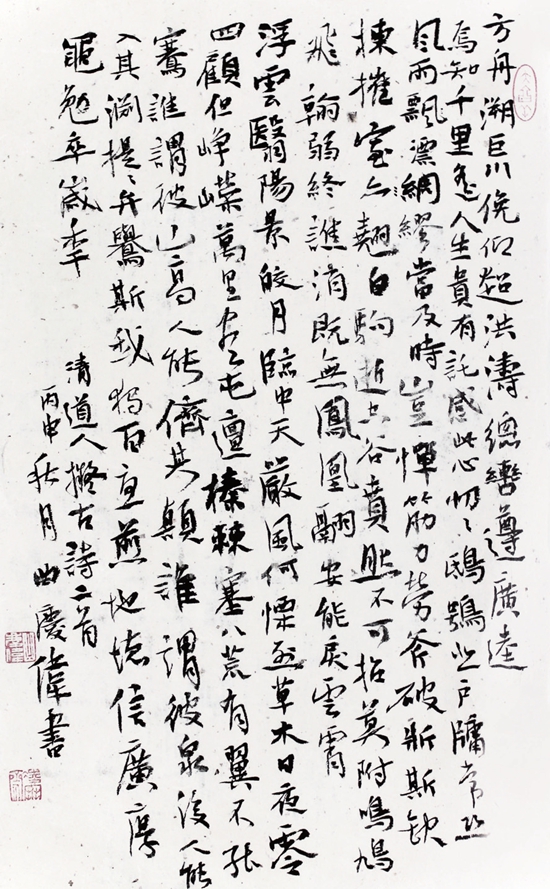 方舟溯巨川俛仰超洪濤總轡遵廣逵
焉知千里遙人生貴有託感此心忉〻鴟鴞止戶牖常恐
風雨飄漂綢繆當及時豈憚筋力勞斧破斨斯缺
棟摧室亦翹白駒逝空谷賁然不可招莫附鳴鳩
飛翰弱終誰消既無鳳凰翮安能戾雲霄
浮雲翳陽景皎月臨中天嚴風何慄烈草木日夜零
四顧但崢嶸萬里盡屯邅榛棘塞八荒有翼不能
騫誰謂彼山高人能儕其顛誰謂彼泉深人能
入其淵提〻弁鸒斯我獨百憂煎地德信廣厚
黽勉卒歲年
清道人擬古詩二首
丙申秋月曲慶偉書